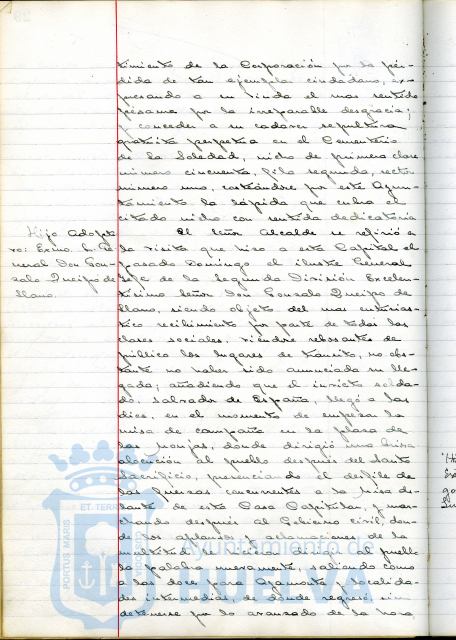 timiento de la Corporación por la pér-
dida de tan ejemplar ciudadano, ex-
presando a su viuda el mas sentido
pésame por la irreparable desgracia;
y conceder a su cadaver sepultura
gratuita perpetua en el Cementerio
de la Soledad, nicho de primera clase
número cincuenta, fila segunda, sector
número uno, costeándose por este Ayun-
tamiento la lápida que cubra el
citado nicho con sentida dedicatoria
Hijo Adopti-
vo: Excmo. Sr. Ge-
neral Don Gon-
zalo Queipo de
Llano.
El Señor Alcalde se refirió a
la visita que hizo a esta Capital el
pasado Domingo el ilustre General
Jefe de la Segunda División Excelen-
tísimo Señor Don Gonzalo Queipo de
Llano, siendo objeto del mas entusias-
tico recibimiento por parte de todas las
clases sociales, viendose rebosantes de
público los lugares de tránsito, no obs-
tante no haber sido anunciada su lle-
gada; añadiendo que el invicto solda-
do, salvador de España, llegó a las
diez, en el momento de empezar la
misa de campaña en la plaza de
las monjas, donde dirigió una
alocución al pueblo despues del Santo
Sacrificio, presenciando el desfile de
las fuerzas concurrentes a la misa de-
lante de esta Casa Capitular, y mar-
chando después al Gobierno civil, don-
de los aplausos y aclamaciones de la
multitud le hicieron dirigir al pueblo
la palabra nuevamente, saliendo como
a las doce para Ayamonte y localida-
des intermedias, de donde regresó, sin
detenerse por lo avanzado de la hora,
PORTUS MARIS ET TERRAE
Ayuntamiento de
HUELVA